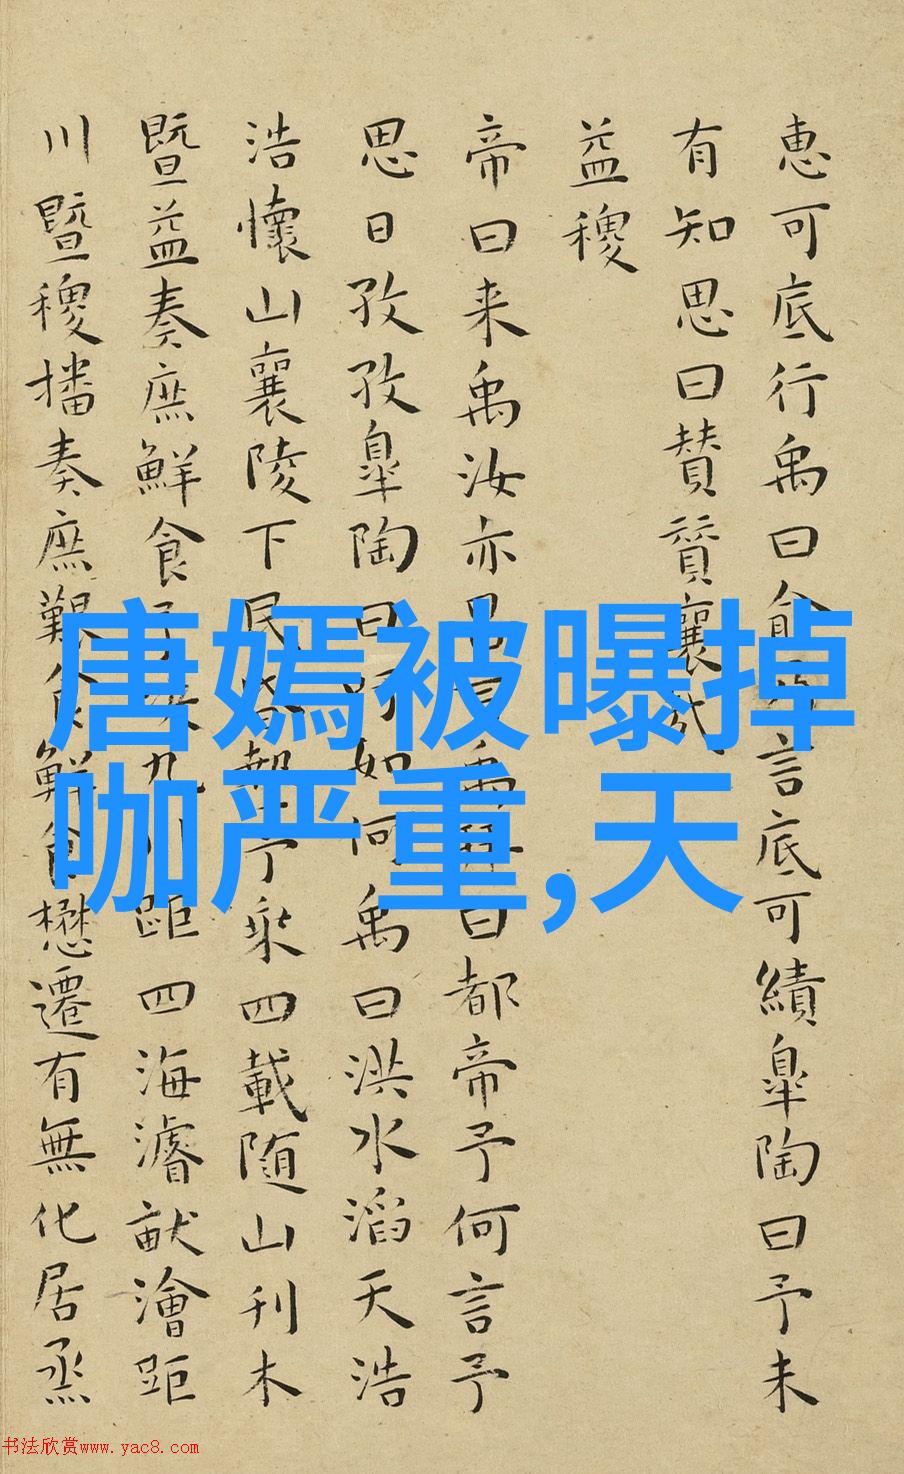 恵可底行禹曰俞乃言底可績皐陶曰予未
有知思曰賛賛襄哉
益稷
帝曰来禹汝亦昌言禹拜曰都帝予何言予
思日孜孜皐陶曰吁如何禹曰洪水滔天浩
浩懷山襄陵下民昏墊予乘四載随山刊木
暨益奏庶鮮食予决九川距四海濬畎澮距
川暨稷播奏庶艱食鮮食懋遷有無化居烝
唐嫣被曝掉
咖严重,天
书法欣赏www.yac8.com